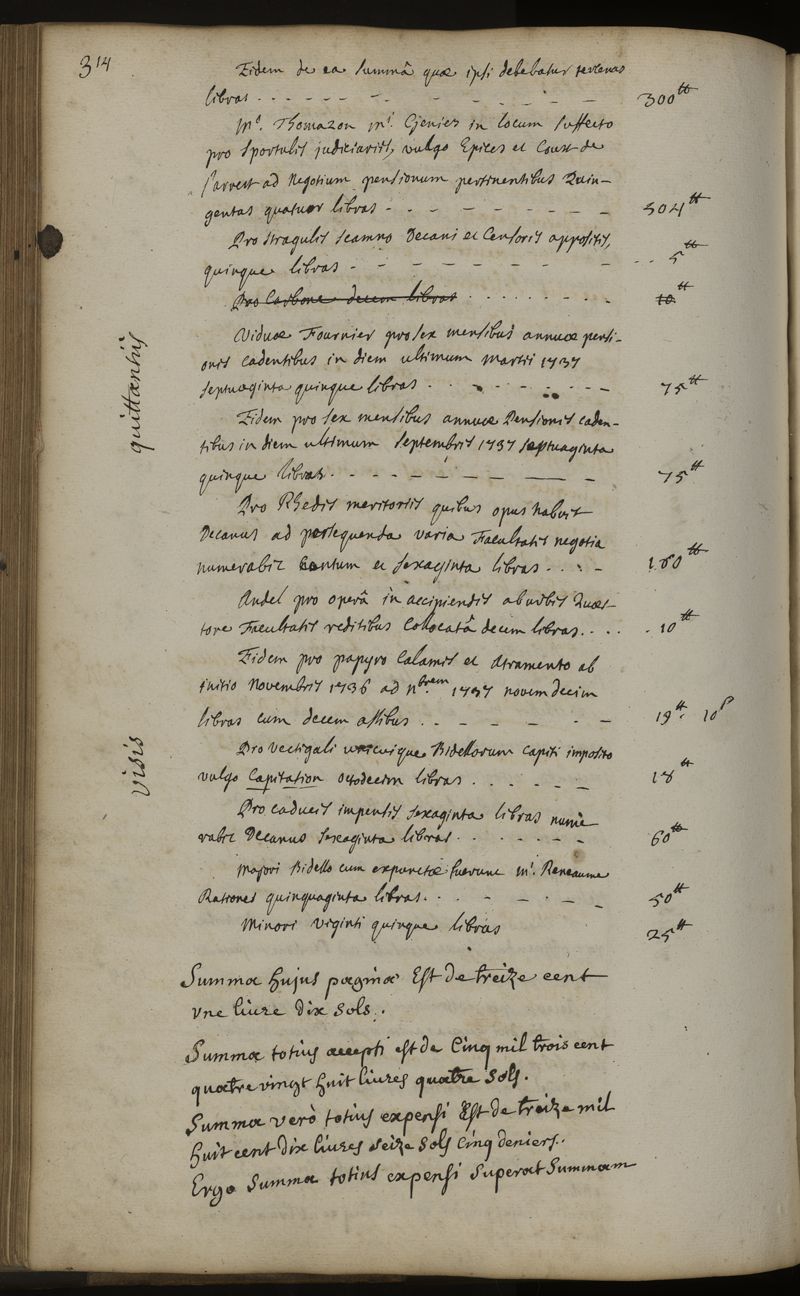 314
Eidem de ea summâ quæ ipsi debebatur tercenas
libras - - - - - - - - - - - 300tt
Mo. Thomazon Mi. Cjenies in locum suffecto
pro Sportulis judiciariis, vulgo Epices et Coust de
l'arrest ad Negotium pensionum pertinentibus Quin-
gentas quatuor libras - - - - - - - - 504tt
Pro Stragulis scamno Decani et Censoris appositis,
quinque libras - - - - - - - - 5tt
Pro Carbone decem libras . . . . . . . . 10tt
Viduæ Fournier pro sex mensibus annuæ pensi-
onis cadentibus in diem ultimum Martii 1737
septuaginta quinque libras . . . . . - - - 75tt
quittantiis
Eidem pro sex mensibus annuæ Pensionis caden-
tibus in diem ultimum Septembris 1737 septuaginta
quinque libras . - - - - - - - - - 75tt
Pro Rhedis meritoriis quibus opus habuit
Decanus ad persequenda varia Facultatis negotia
numerabit centum et sexaginta libras - . . - 160tt
Andel pro operâ in accipiendis ab urbis Quæs-
tore Facultatis reditibus Collocatâ decem libras. . . . . 10tt
Eidem pro papyro Calamis et Atramento ab
initio Novembris 1736 ad nbrem 1737 novemdecim
libras cum decem assibus . . - - - - . - 19tt. 10s
visis
Pro Vectigali unicuique Bidellorum Capiti imposito
vulgo Capitation octodecim libras . . . . . - 18tt
Pro caducis impensis sexaginta libras nume
rabit Decanus sexaginta libras . . . . . - - 60tt
Majori Bidello cum expunctæ fuerunt Mi. Reneaume
Rationes quinquaginta libras. . . - - . - - 50tt
Minori viginti quinque libras 25tt
Summa hujus paginæ Est de treize cent
vne liure dix sols .
Summa totius accepti est de Cinq mil trois cent
quatre vingt huit liures quatre sols .
Summa verò totius expensi Est de treize mil
huit cent dix liures seize sols cinq deniers .
Ergo Summa totius expensi superat Summam